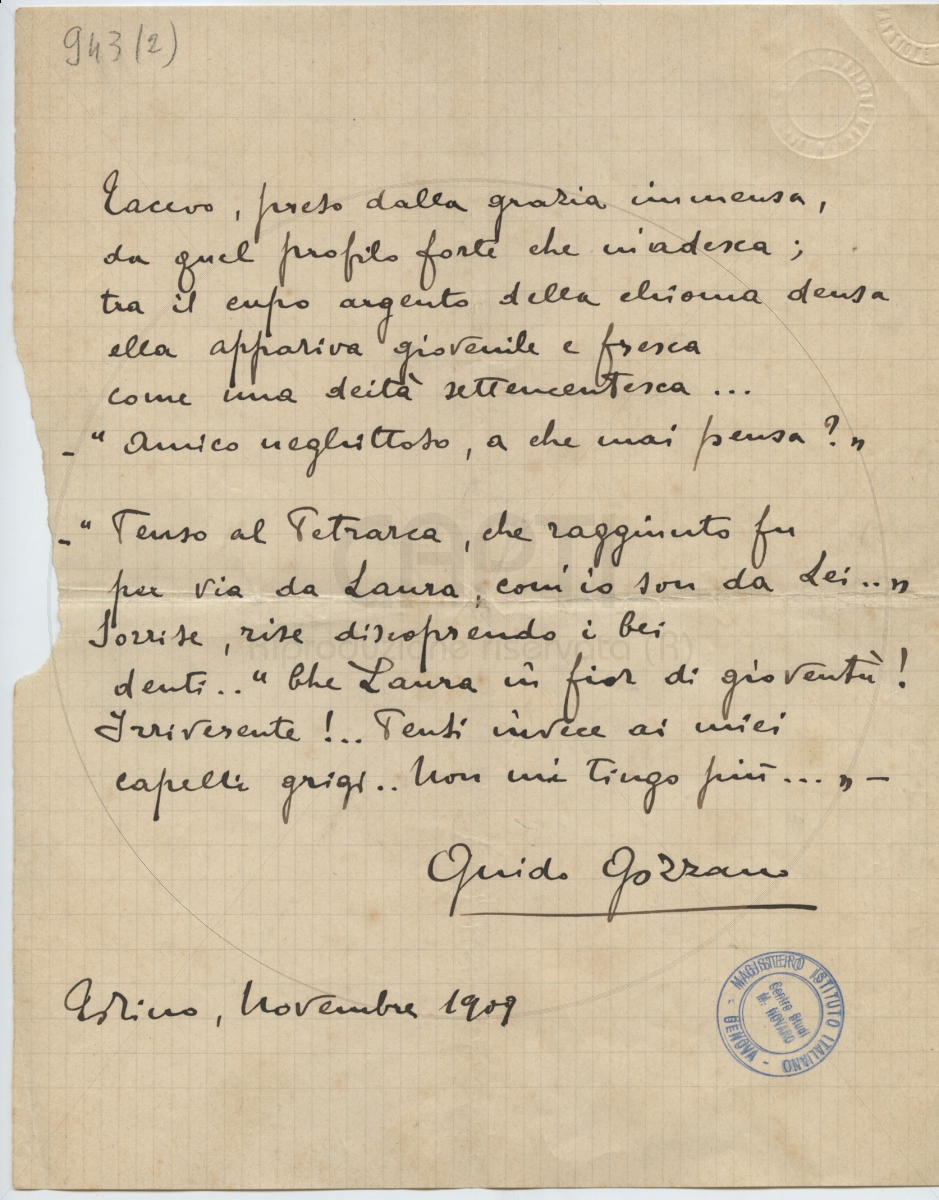 943 (2)
Tacevo, preso dalla grazia immensa,
da quel profilo forte che m'adesca;
tra il cupo argento della chioma densa
ella appariva giovenile e fresca
come una deità settecentesca ...
- " Amico neghittoso, a che mai pensa? „
- " Penso al Petrarca, che raggiunto fu
per via da Laura, com'io son da Lei .. „
Sorrise, rise discoprendo i bei
denti .. " Che Laura in fior di gioventù!
Irriverente! .. Pensi invece ai miei
capelli grigi .. Non mi tingo più ... „ -
Guido Gozzano
, Novembre 1909
MAGISTERO ISTITUTO ITALIANO - GENOVA -
Centro Studi
M. NOVARO
Riproduzione riservata (R)